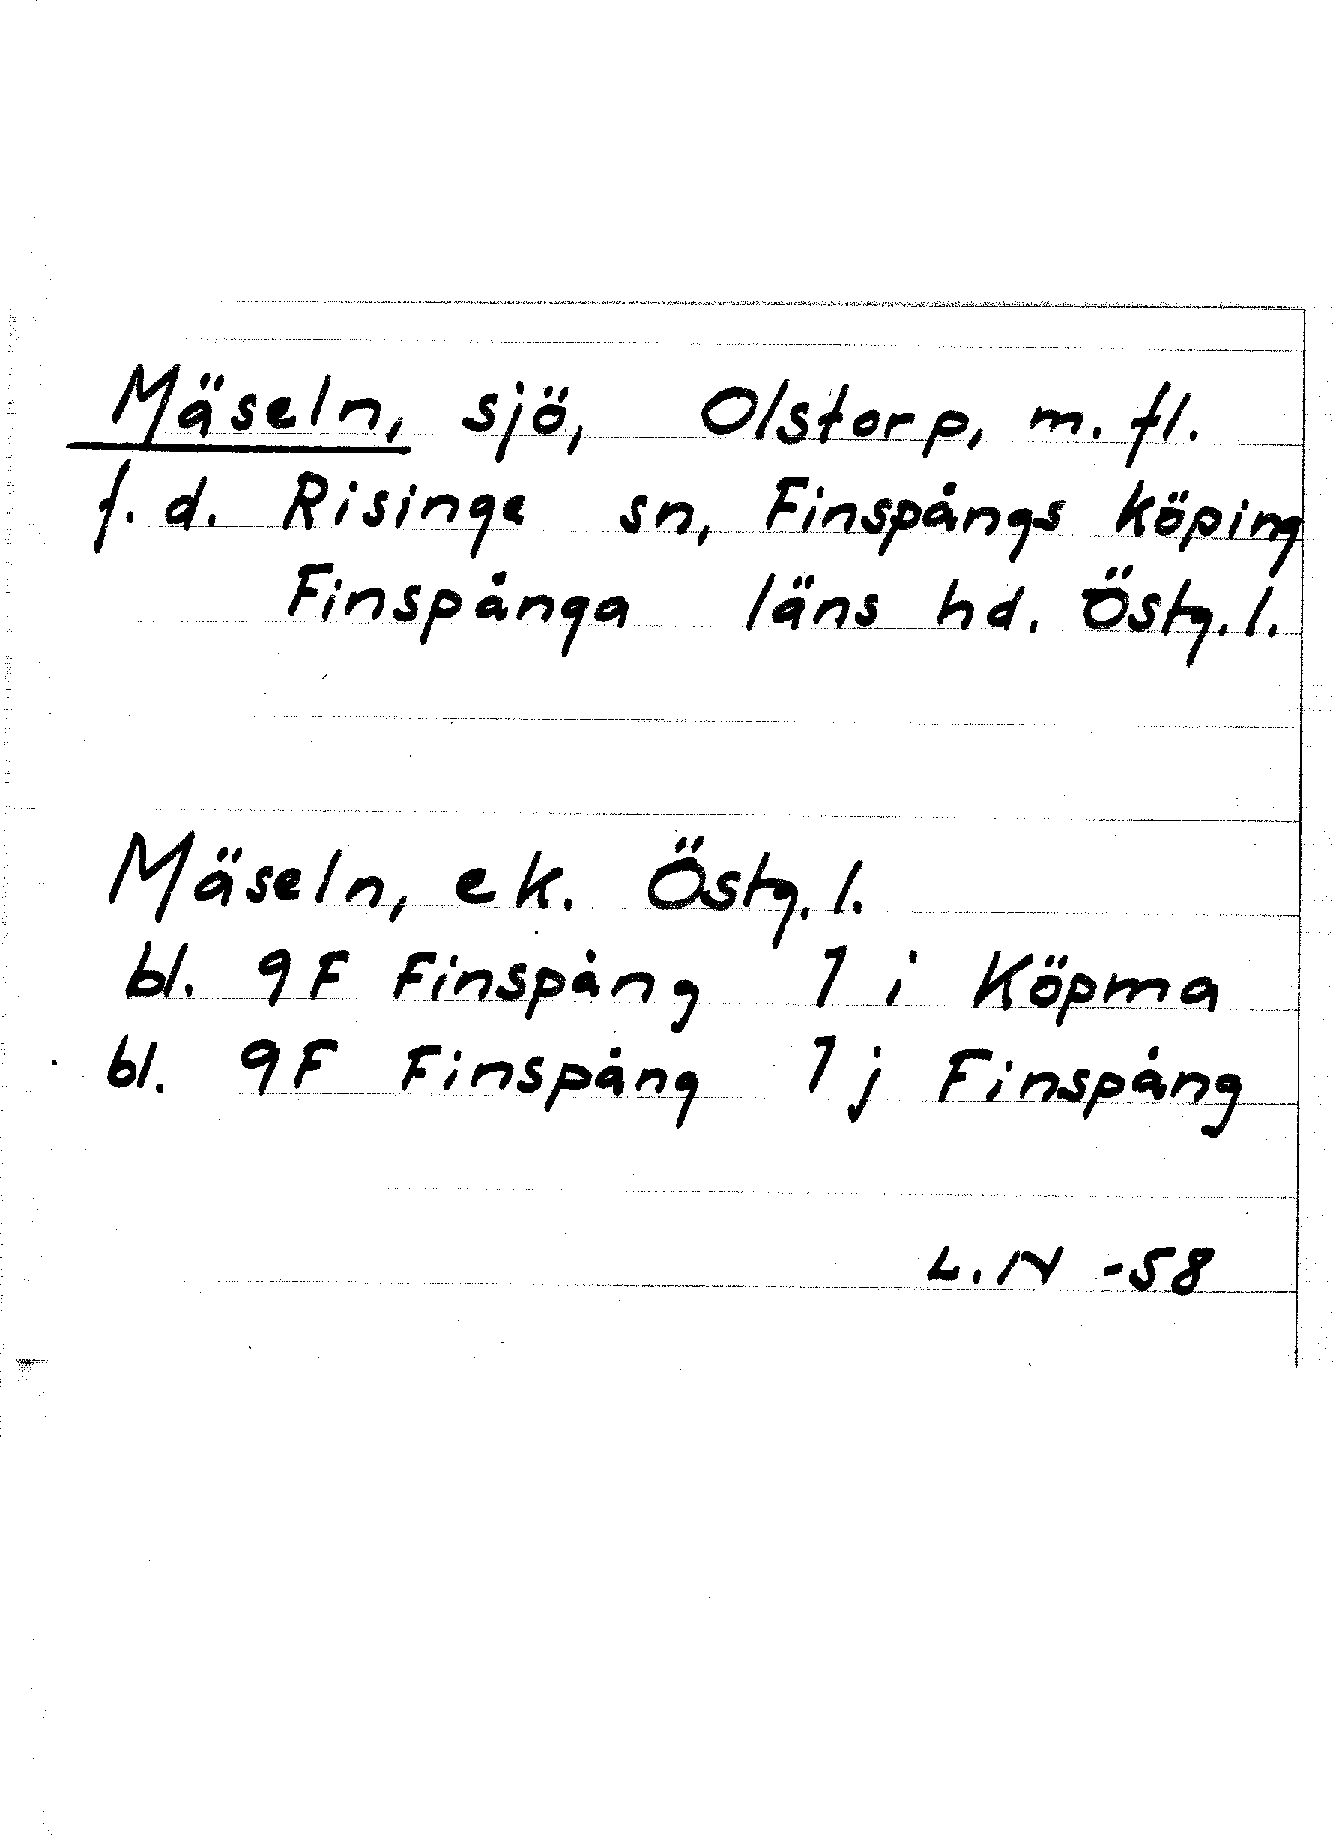 Mäseln, sjö, Olstorp, m. fl.
f. d. Risinge sn, Finspångs köping
Finspånga läns hd. Östg. l.
Mäseln, ek. Östg. l.
bl. 9F Finspång 1 i Köpma
bl. 9F Finspång 1 j Finspång
L. N -58